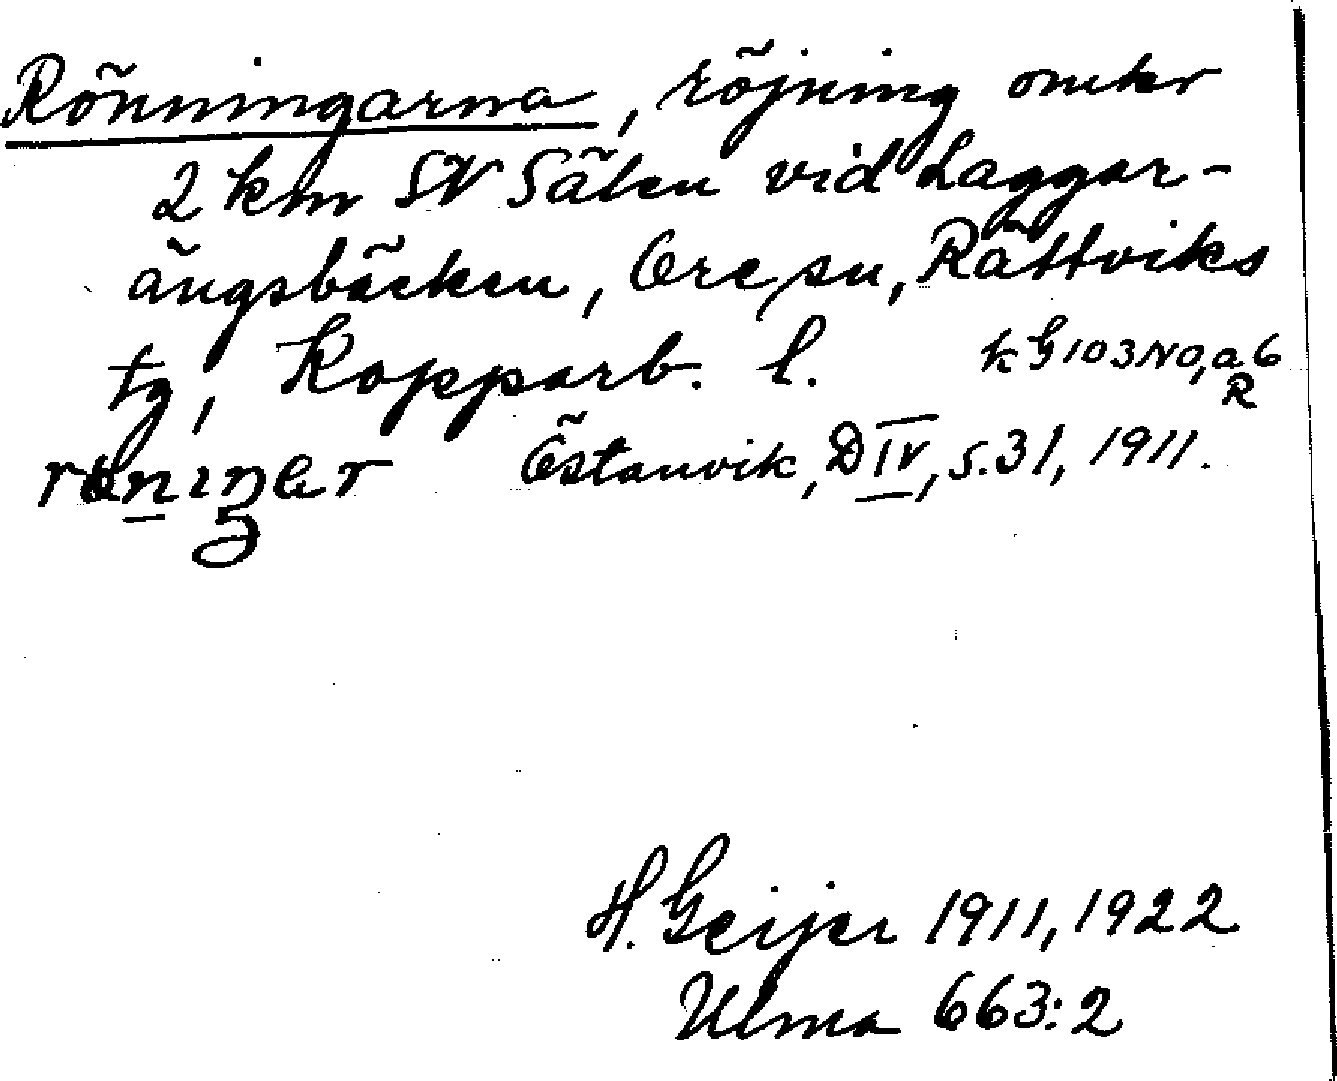 Rönningarna, röjning omkr
2 km SV Säten vid Laggar-
ängsbäcken, Ore sn, Rättviks
tg, Kopparb. l. k G 103 NO, a 6
R
Östanvik, D IV, s. 31, 1911.
H. Geijer 1911, 1922
Ulma 663:2